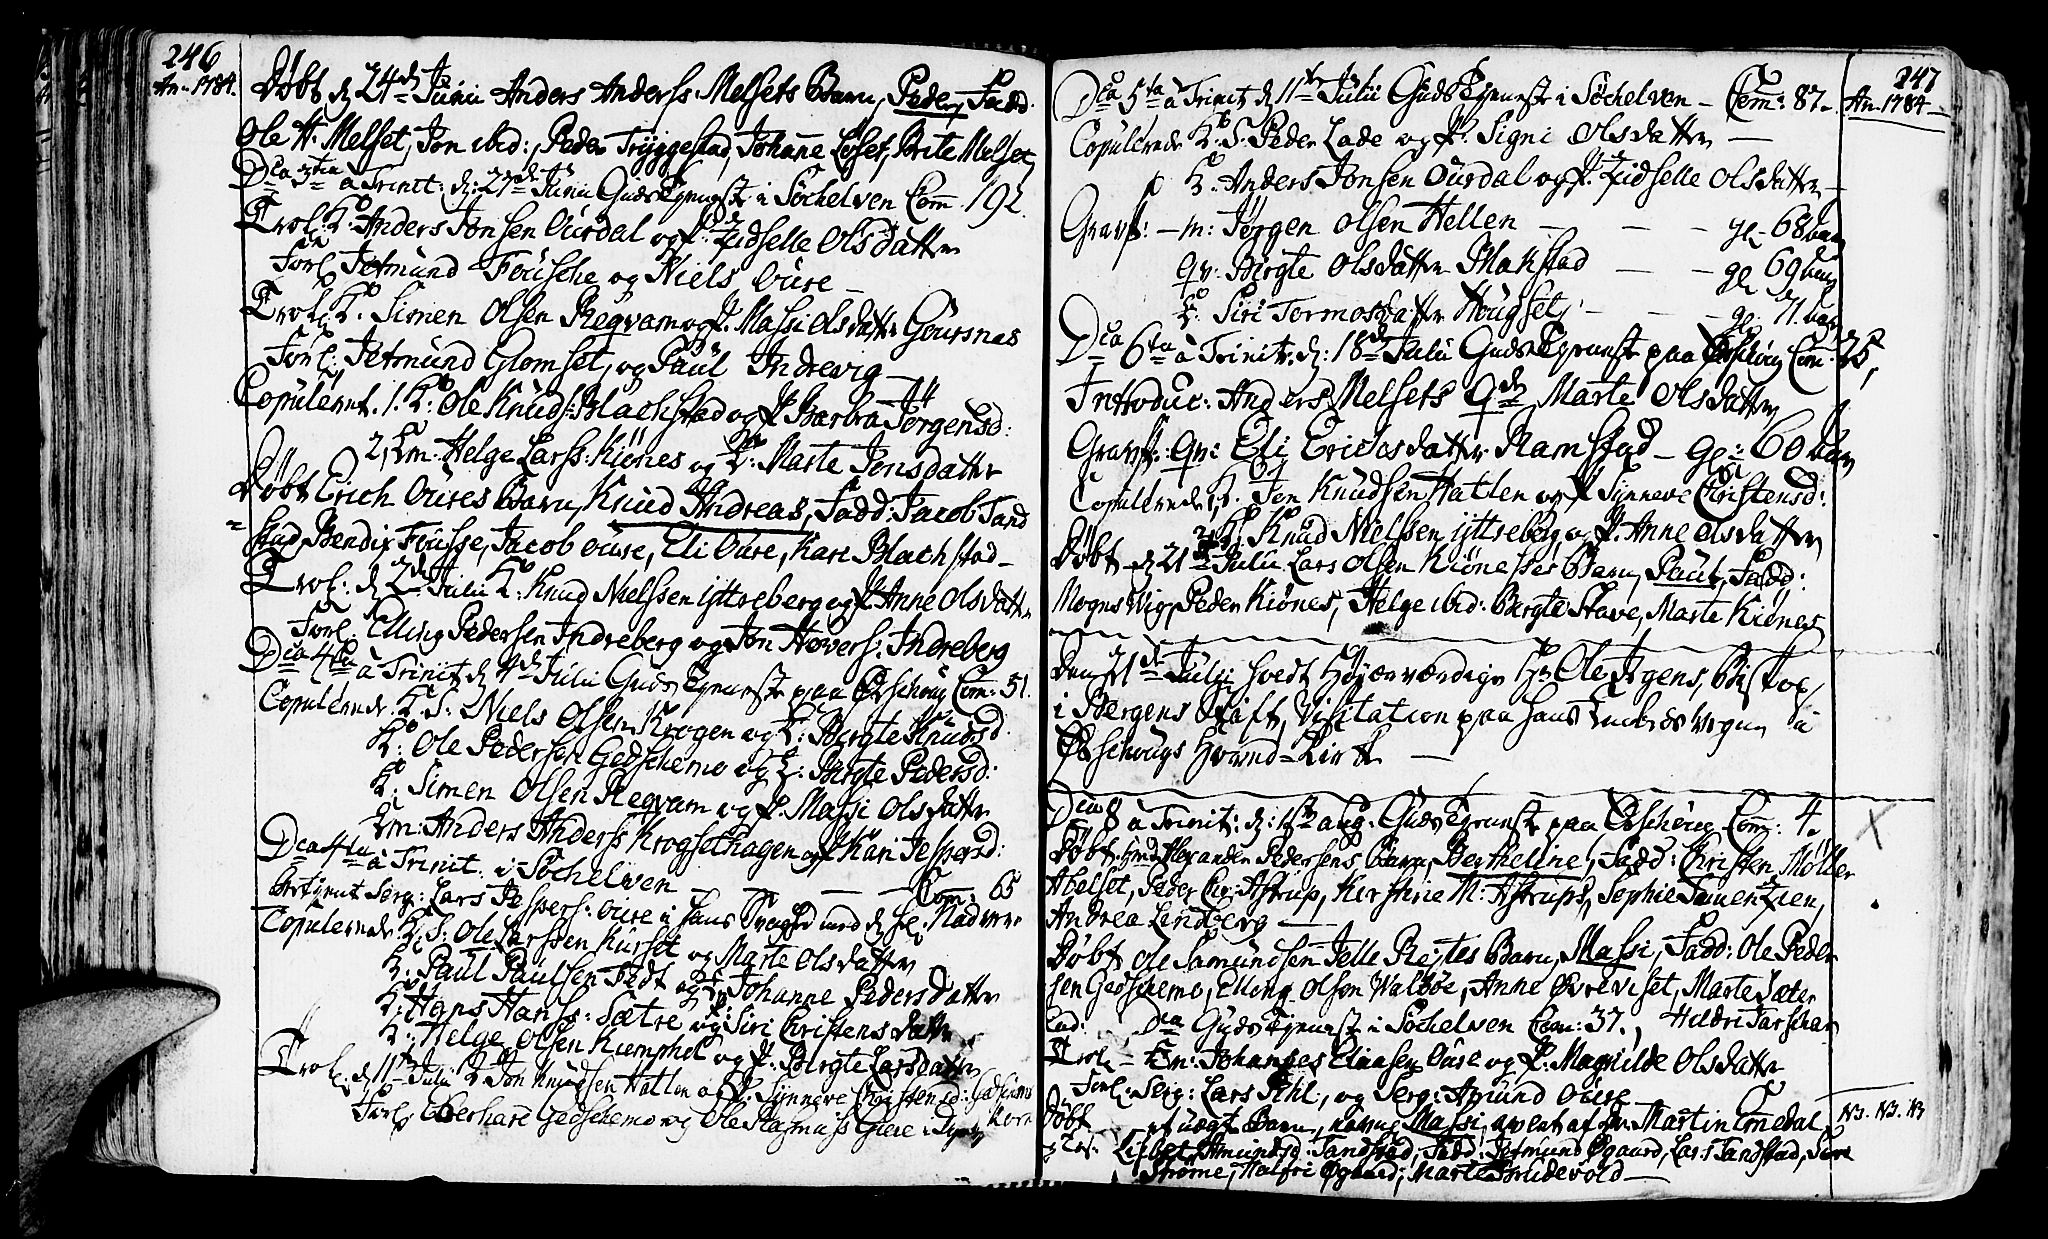 246
An. 1784.
Døbt d 24de Junii Anders Anderss. Melsets Barn, Peder, Fadd.
Ole H. Melset, Jon ibid:, Peder Tryggestad, Johane Løset, Brite Melset
Dca 3tia a Trinit: d: 27de Junii Guds Tieneste i Søchelven Com. 192.
Trol: K. Anders Jonsen Ourdal og P. Zidselle Olsdatter
Forl. Jetmund Fousche og Niels Oure
Trol: K. Simen Olsen Regvam og P. Massi Olsdatter Gousnas
Forl: Jetmund Glomset, og Paul Indrevig
Copulernt. 1. K: Ole Knuds: Blachstad og P. Barbra Jørgensd:
2, Em: Helge Larss: Kiønes og E: Marte Jonsdatter
Døbt Erich Oures Barn, Knud Andreas, Fadd: Jacob Tand
stad, Bendix Fousse, Jacob Oure, Eli Oure, Kari Blachstad
Trol: d 2de Julii K: Knud Nielssen yttreberg og P. Anne Olsdatter
Forl: Elling Pedersen Indreberg og Jon Hovers: Indreberg
Dca 4ta a Trinit d 4de Julii Guds Tieneste paa Ørschoug Com: 51.
Copulerede. K. S: Niels Olsen Krogen og E: Birgte Knudsd.
K: Ole Pedersen Gedschemo og E: Birgte Pedersd:
K. Simen Olsen Regvam og P. Massi Olsdatter
Em: Anders Anderss Krogsethagen og P Kari Jespersd:
Dca 4ta a Trinit. i Søchelven — — — Com: 65
Lars Jespers: Oure i hans
Copulerede K. S: Ole Larssen Kurset og Marte Olsdatter
K: Paul Paulsen Tedt og Johanne Pedersdatter
K: Hans Hanss: Sætre og Siri Christensdatter
K: Helge Olsen Kiemphol og P. Birgte Larsdatter
Trol. d. 11te Julii K Jon Knudsen Hatlen og P. Synneve Christensd:
Forl: Eberhard Gedschemo og Ole Rasmuss Giere
247
An. 1784
Dca 5ta a Trinit d 11te Julii Guds Tieneste i Søchelven — Com: 87.
Copulerede K. S. Peder Lade og P. Signi Olsdatter —
K. Anders Jonsen Ourdal og P. Zidselle Olsdatter
Gravf: — m: Jørgen Olsen Hellen — — — gl. 68 
qv. Birgte Olsdatter Makstad — — gl 69 
Siri Tormosdatter Hougset — — gl. 71. 
Dca 6ta a Trinit. d: 18de Julii Guds Tieneste paa Ørschoug Com: 25,
Introduc: Anders Melsets Marte Olsdatter
Gravf: qv: Eli Erichsdatter Ramstad — gl: 60 
Copulerede, K. Jon Knudsen Hatlen og P Synneve Christensd:
2, K. Knud Nielssen yttreberg og P. Anne Olsdatter
Døbt d 21de Julii Lars Olsen Kiønesses Barn, Paul, Fadd:
Mogns Vig, Peder Kiønes, Helge ibid: Bergte Stave, Marte Kiønes
Den 21de Julii holdt Høyærværdige Hr. Ole Irgens, Biskop
i Bergens Stift, Visitation paa hans Embeds Vegne i
Ørschougs Hoved-Kirke —
Dca 8 a Trinit: d: 1ste aug: Guds Tieneste paa Ørschoug Com: 4.
Døbt. Alexander Pedersens Barn, Bertheline, Fadd: Christen Møller
Abelset, Peder Chr: Astrup, Kirstine M. Astrups, Sophie
Andrea Lindberg —
Døbt Ole Samundsen Jelle Reites Barn, Massi, Fadd: Ole Peder
sen Gedschemo, Elling Olsen Walbøe, Anne Øvreviset, Marte Sæter
Dca Guds Tieneste i Søchelven Com: 37., Heldri
Trol — Em: Johannes Claasen Oure og P. Magnilde Olsdatter
Forl. Serg: Lars Pihl, og Serg: Amund Oure
Døbt et uægt Barn, navnl. Massi, avlet af Martin Emedal,
Lisbet Amundsd. Tandstad, Fadd: Jetmund Øgaard, Lars Tandstad, Sive
Strøme, Øgaard, Marte Brudevold —
NB. NB. NB